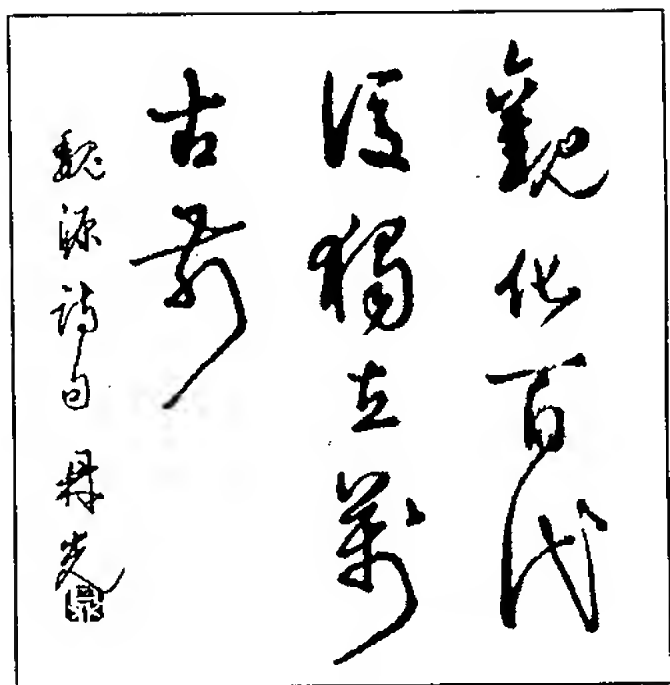 觀化百代
後獨立萬
古前
魏源詩句